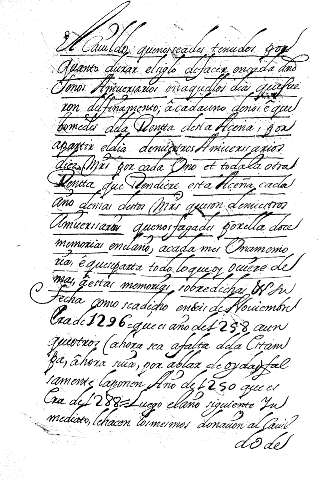 el Cavildo; que nos seades tenudos por
quanto durar el siglo de facer en cada año
Anniversarios en aquellos dias que
ron defunamente, à cada uno donos è que
tomedes dela Renta desta Acena, por
el dia de nuestros Anniversarios
diez Mrs por cada Uno et toda la otra
Renta que Rendiere esta Acena cada
año demas destos Mrs
Anniversarios que nos fagades por ella doce
memorias en el año, à cada mes Una memo
ria, è que sea todo lo que y oviere de
mas en estas memorias sobredichas Ut in
Fecha como seadicho en de Noviembre
Era de 1296 = que es año de 1258 aun
que otros (ahora sea falta dela Estam
pa, ahora sea, por ablar de oydas y fal
samente) la ponen Año de 1250 que es
Era de 1288 = Luego el año siguiente In
mediato, le hacen los mesmos donacion al Cavil
do de